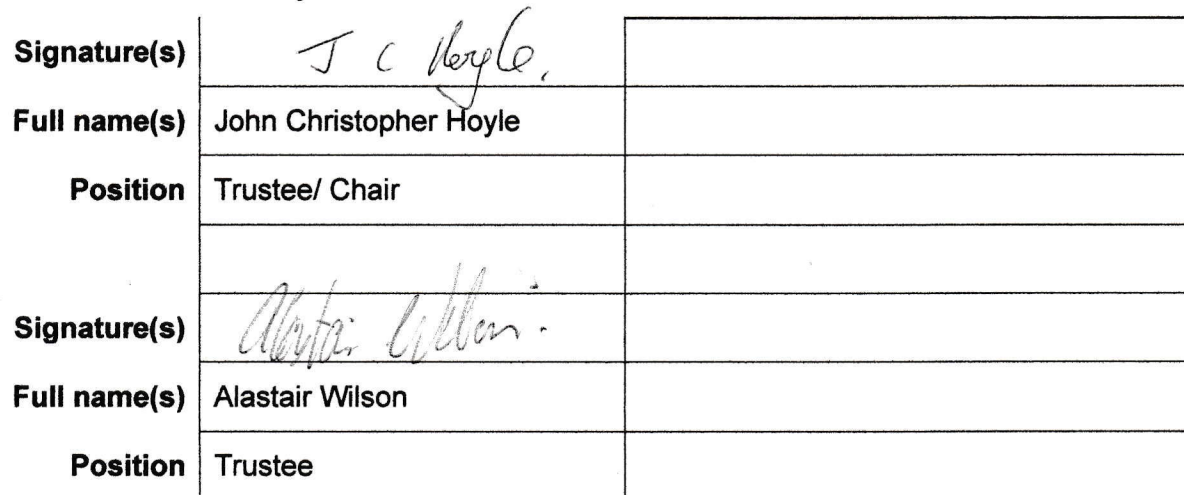 Signature(s) J C Hoyle.
Full name(s) John Christopher Hoyle
Position Trustee/ Chair
Signature(s) Alastair Wilson.
Full name(s) Alastair Wilson
Position Trustee